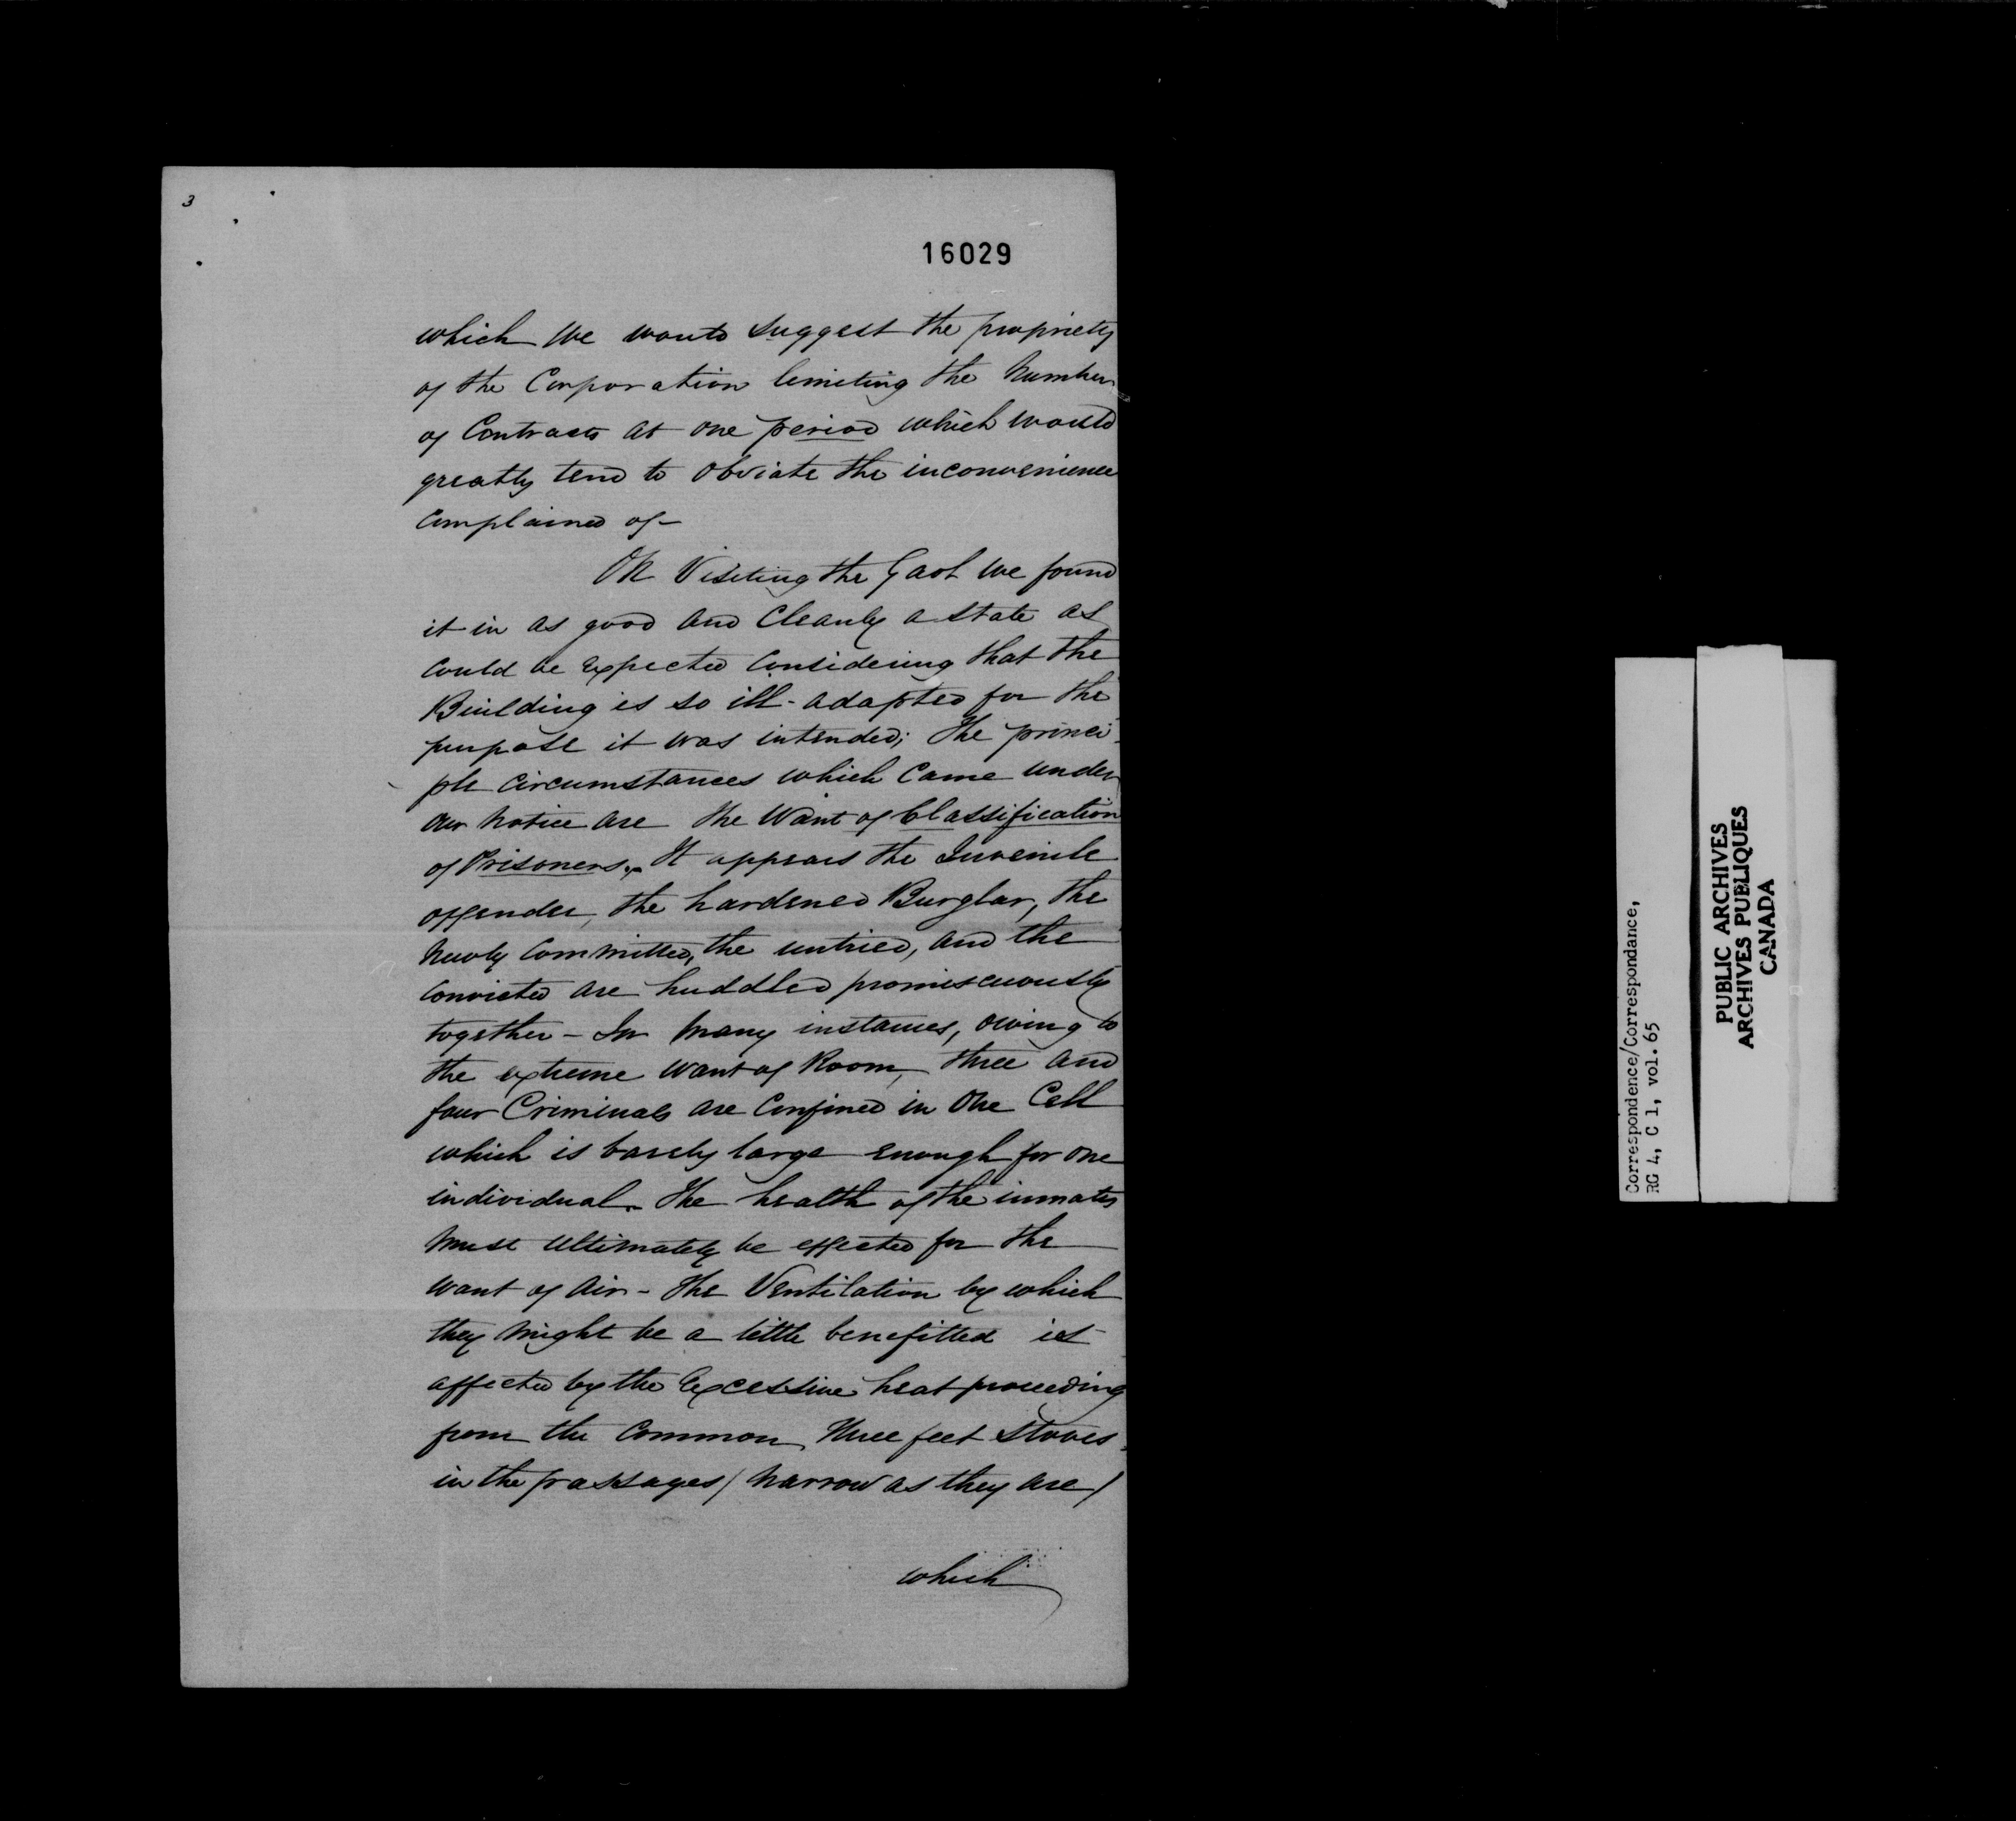 3
16029
which we would suggest the propriety
of the Corporation limiting the Number
of Contracts at one period which would
greatly tend to obviate the inconvenience
complained of—
On Visiting the Gaol we found
it in as good and Cleanly a state as
could be expected Considering that the
Building is so ill-adapted for the
purpose it was intended; The princi-
ple circumstances which Came under
our notice are the Want of Classification
of Prisoners. It appears the Juvenile
offender, the hardened Burglar, the
newly Committed, the untried, and the
convicted are huddled promiscuously
together— In many instances, owing to
the extreme want of Room, three and
four Criminals are Confined in One Cell
which is barely large enough for one
individual. The health of the inmates
must ultimately be effected for the
want of Air— The Ventilation by which
they might be a little benefitted is
affected by the Excessive heat proceeding
from the Common three feet Stoves
in the passages / narrow as they are /
which
Correspondence/Correspondance,
RG 4, C 1, vol. 65
PUBLIC ARCHIVES
ARCHIVES PUBLIQUES
CANADA